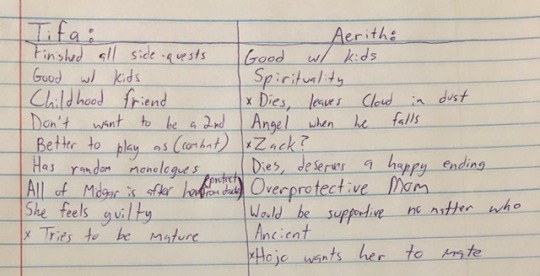 Tifa:
Finished all side-quests
Good w/ kids
Childhood friend
Don't want to be a 2nd
Better to play as (combat)
Has random monologues
All of Midgar is after her (protect
She feels guilty
x Tries to be mature
Aerith:
Good w/ kids
Spirituality
x Dies, leaves Cloud in dust
Angel when he falls
x Zack?
Dies, deserves a happy ending
Overprotective Mom
Would be supportive no matter who
Ancient
x Hojo wants her to mate